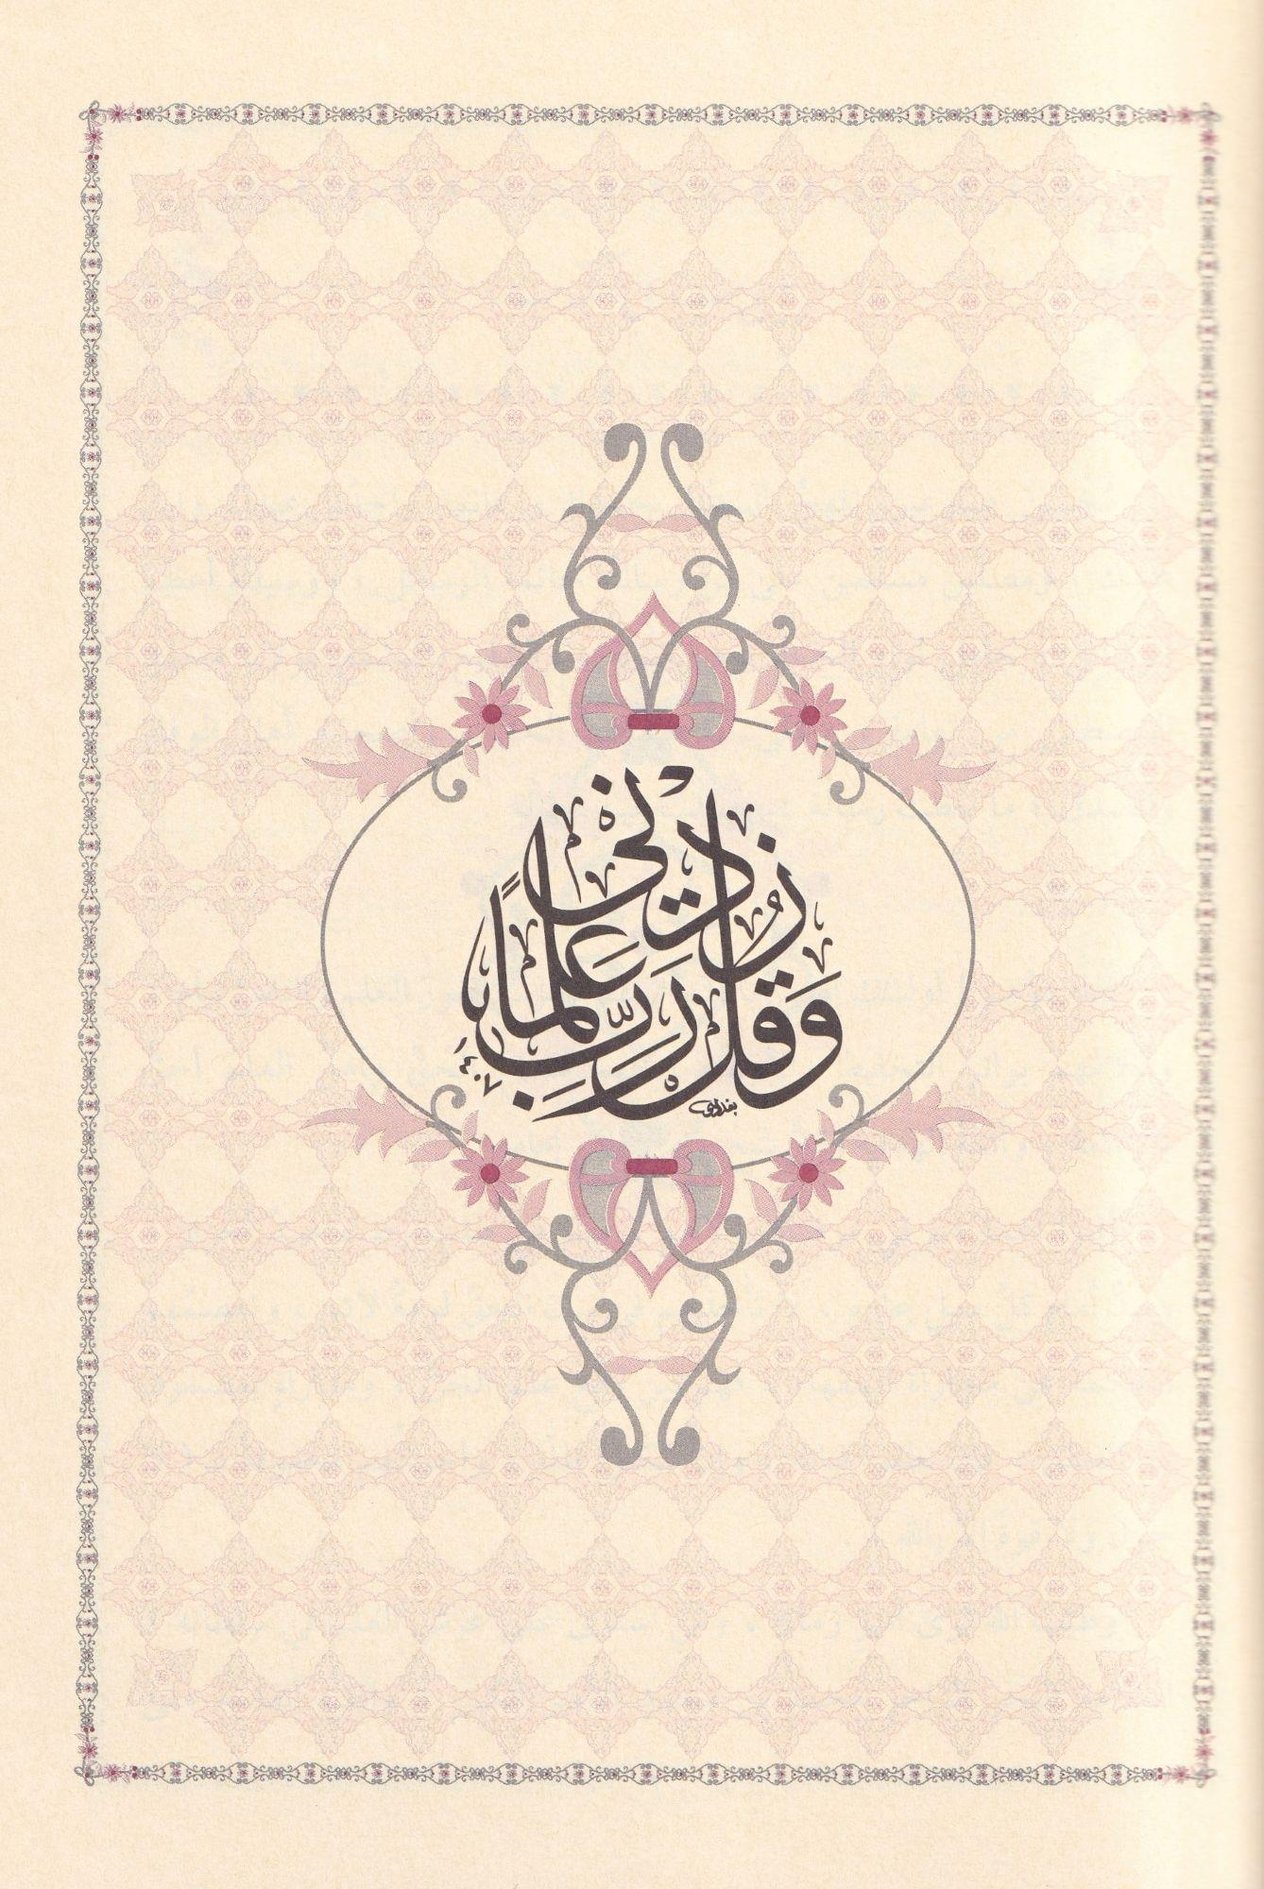 وَقُل رَّبِّ زِدْنِي عِلْمًا
١٤٠٧